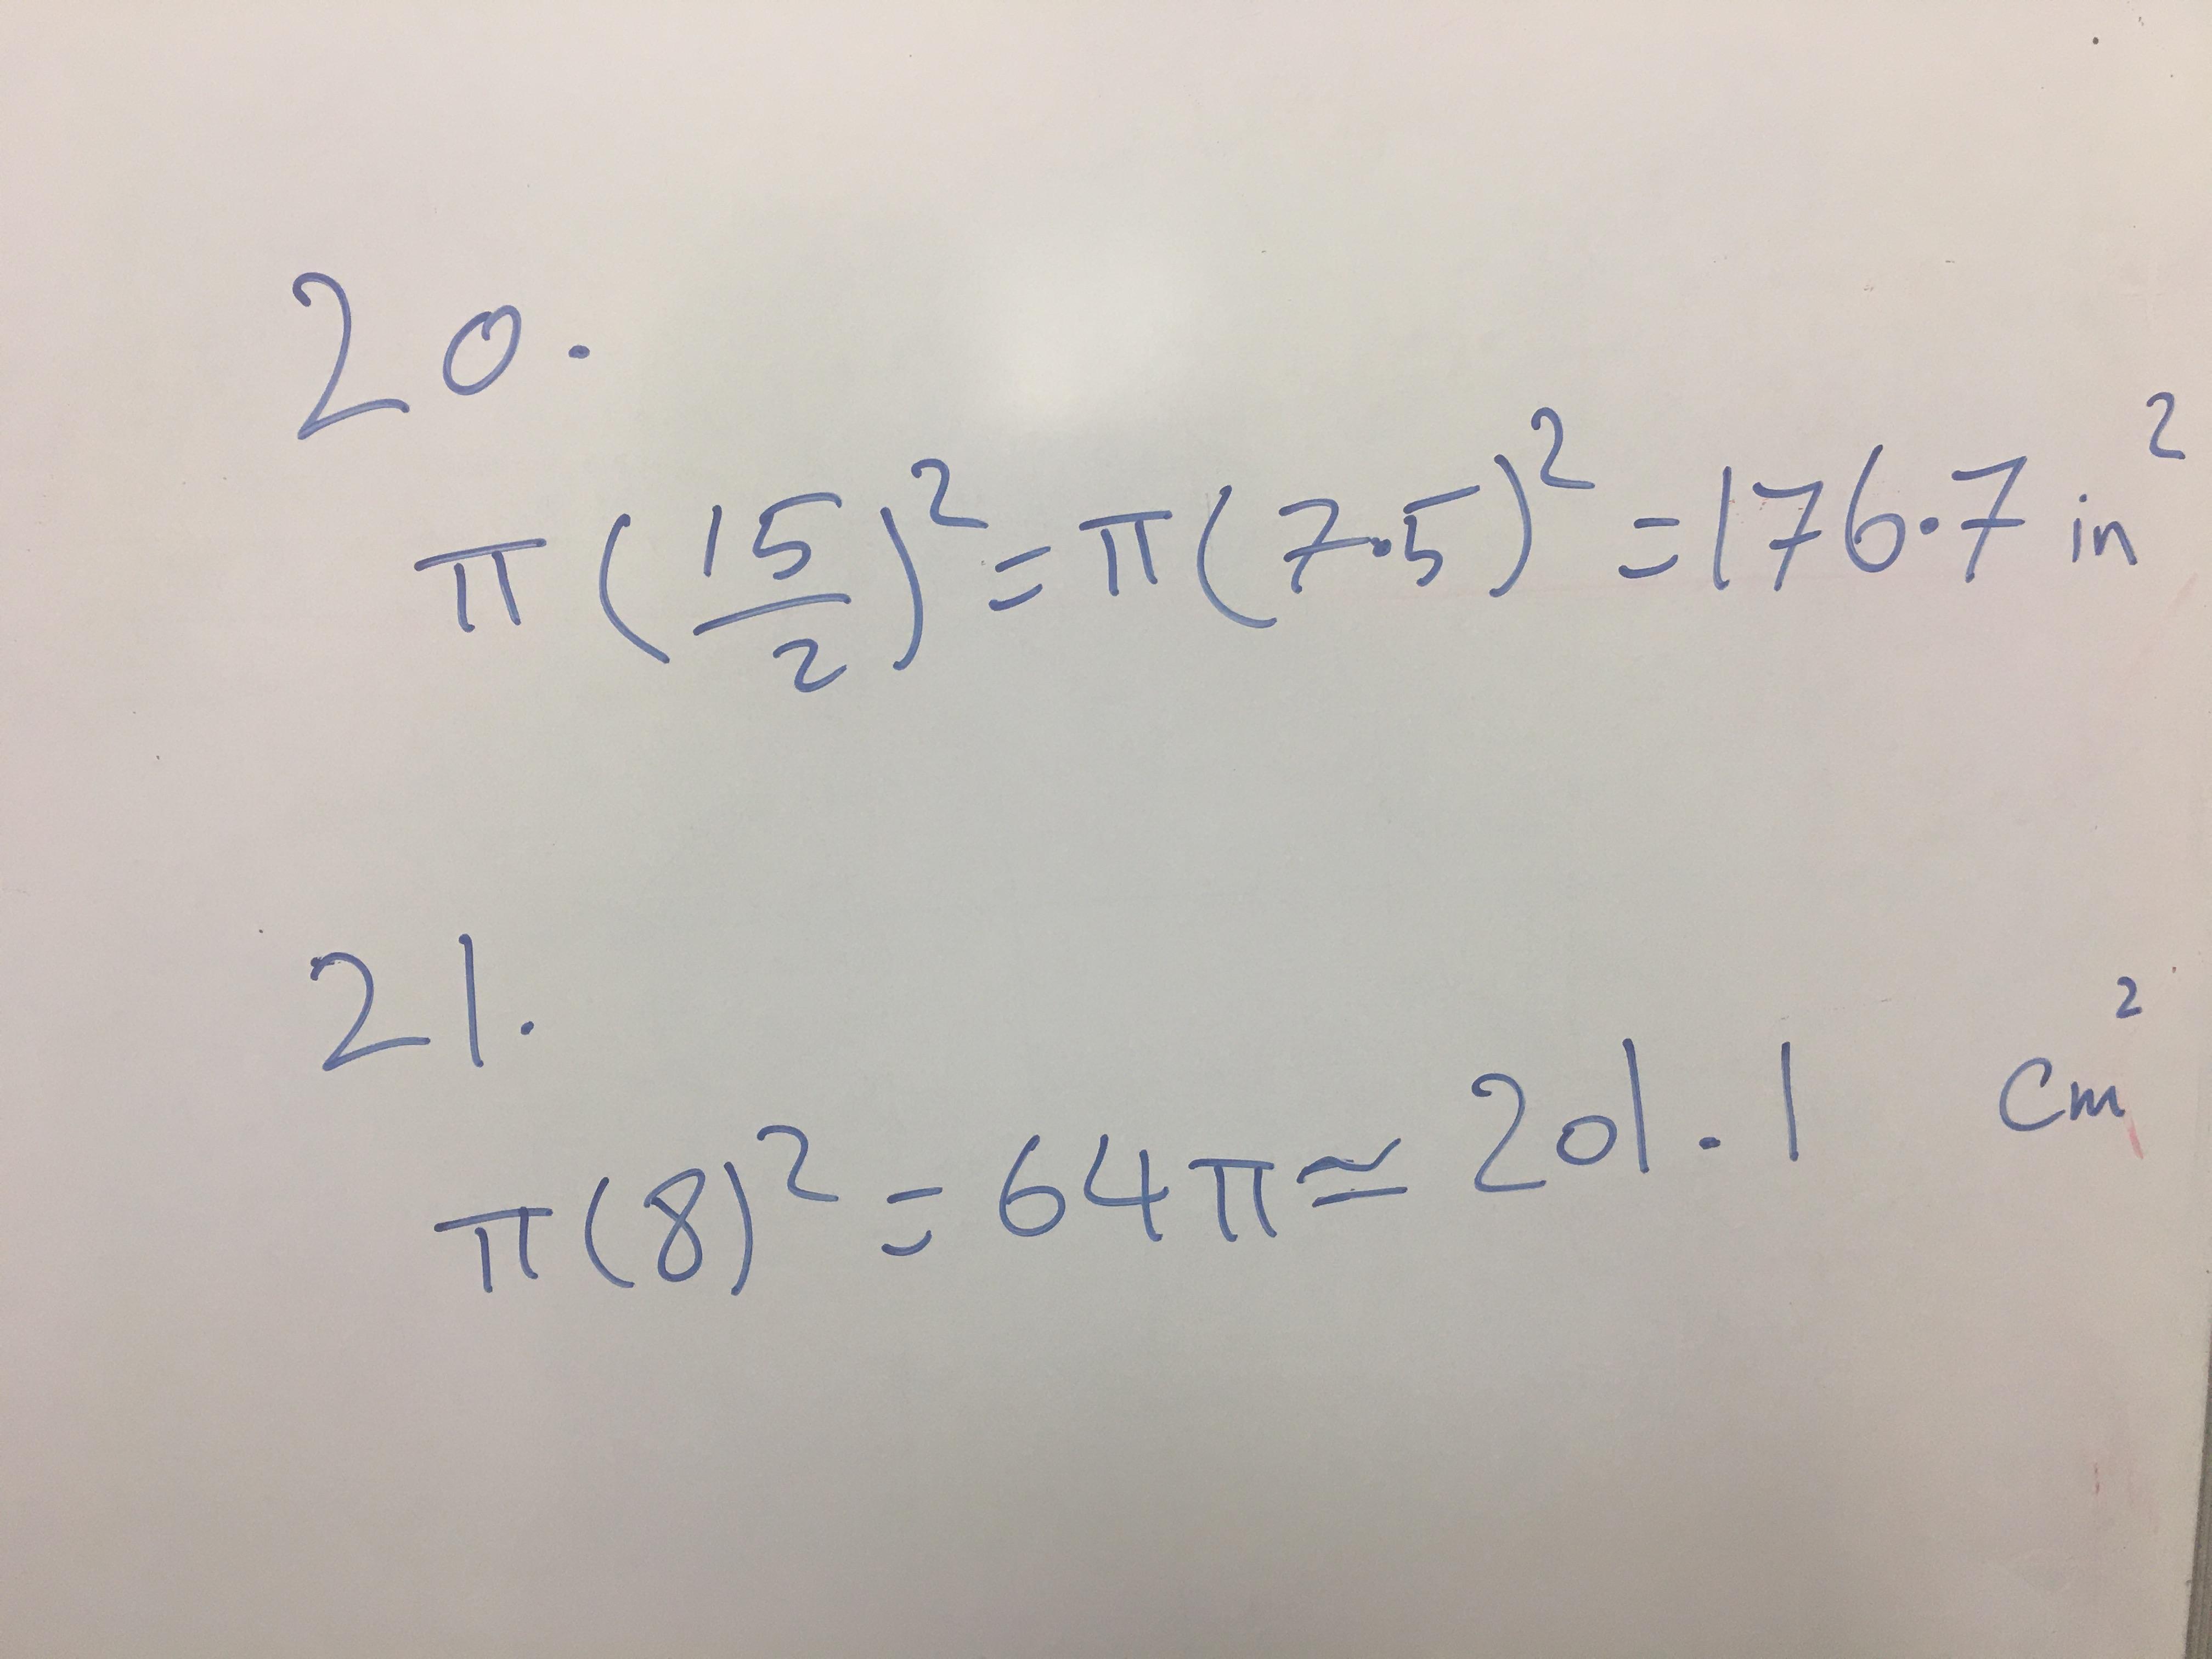 20.
π(15/2)² = π(7.5)² = 176.7 in²
21.
π(8)² = 64π ≃ 201.1 cm²